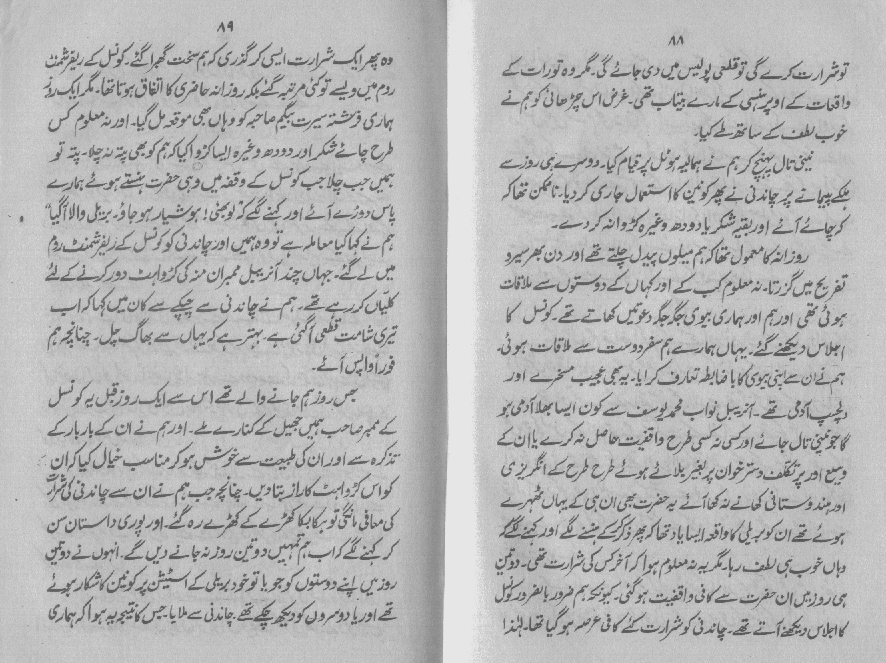 ۸۸
تو شرارت کرے گی تو قلعی پولیس میں دی جائے گی۔ مگر وہ تو رات کے
واقعات کے اوپر ہنسی کے مارے بیتاب تھی۔ غرض اس چڑھائی کو ہم نے
خوب لطف کے ساتھ طے کیا۔
نینی تال پہنچ کر ہم نے ہمالیہ ہوٹل پر قیام کیا۔ دوسرے ہی روز سے
ہلکے پیمانے پر چاندنی نے پھر کونین کا استعمال جاری کر دیا۔ ناممکن تھا کہ
کہ چائے آئے اور بقیہ شکر یا دودھ وغیرہ کڑوا نہ کر دے۔
روزانہ کا معمول تھا کہ ہم میلوں پیدل چلتے تھے اور دن بھر سیر و
تفریح میں گزرتا۔ نہ معلوم کب کے اور کہاں کے دوستوں سے ملاقات
ہوئی تھی اور ہم اور ہماری بیوی جگہ جگہ دعوتیں کھاتے تھے۔ کونسل کا
اجلاس دیکھنے گئے۔ یہاں ہمارے ہم سفر دوست سے ملاقات ہوئی۔
ہم نے ان سے اپنی بیوی کا باضابطہ تعارف کرایا۔ یہ بھی عجیب مسخرے اور
دلچسپ آدمی تھے۔ آنریبل نواب محمد یوسف سے کون ایسا بھلا آدمی ہو
گا جو نینی تال جائے اور کسی نہ کسی طرح واقفیت حاصل نہ کرے یا ان کے
وسیع اور پر تکلف دسترخوان پر بغیر بلائے ہوئے طرح طرح کے انگریزی
اور ہندوستانی کھانے نہ کھا آئے یہ حضرت بھی ان ہی کے یہاں ٹھہرے
ہوئے تھے ان کو بریلی کا واقعہ ایسا یاد تھا کہ پھر ذکر کر کے ہنسنے لگے اور کہنے لگے کہ
وہاں خوب ہی لطف رہا۔ مگر یہ نہ معلوم ہوا کہ آخر کس کی شرارت تھی۔ دو تین
ہی روز میں ان حضرت سے کافی واقفیت ہو گئی۔ کیونکہ ہم ضرور بالضرور کونسل
کا اجلاس دیکھنے آتے تھے۔ چاندنی کو شرارت کئے کافی عرصہ ہو گیا تھا۔ لہٰذا
۸۹
وہ پھر ایک شرارت ایسی کر گذری کہ ہم سخت گھبرا گئے۔ کونسل کے ریفرشمنٹ
روم میں ویسے تو کئی مرتبہ گئے بلکہ روزانہ حاضری کا اتفاق ہوتا تھا۔ مگر ایک روز
ہماری فرشتہ سیرت بیگم صاحبہ کو وہاں بھی موقعہ مل گیا۔ اور نہ معلوم کس
طرح چائے شکر اور دودھ وغیرہ ایسا کڑوا کیا کہ ہم کو بھی پتہ نہ چلا۔ پتہ تو
ہمیں جب چلا جب کونسل کے وقفہ میں وہی حضرت ہنستے ہوئے ہمارے
پاس دوڑے آئے اور کہنے لگے کہ "لو بھئی! ہوشیار ہو جاؤ۔ بریلی والا آگیا"
ہم نے کہا کیا معاملہ ہے تو وہ ہمیں اور چاندنی کو کونسل کے ریفرشمنٹ روم
میں لے گئے۔ جہاں چند آنریبل ممبران منہ کی کڑواہٹ دور کرنے کے لئے
کلیاں کر رہے تھے۔ ہم نے چاندنی سے چپکے سے کان میں کہا کہ اب
تیری شامت قطعی آگئی ہے۔ بہتر ہے کہ یہاں سے بھاگ چل۔ چنانچہ ہم
فوراً واپس آئے۔
جس روز ہم جانے والے تھے اس سے ایک روز قبل یہ کونسل
کے ممبر صاحب ہمیں جھیل کے کنارے ملے۔ اور ہم نے ان کے بار بار کے
تذکرہ سے اور ان کی طبیعت سے خوش ہو کر مناسب خیال کیا کہ ان
کو اس کڑواہٹ کا راز بتا دیں۔ چنانچہ جب ہم نے ان سے چاندنی کی شرارت
کی معافی مانگی تو ہکا بکا کھڑے کے کھڑے رہ گئے۔ اور پوری داستان سن
کر کہنے لگے کہ اب ہم تمہیں دو تین روز نہ جانے دیں گے۔ انہوں نے دو تین
روز میں اپنے دوستوں کو جو یا تو خود بریلی کے اسٹیشن پر کونین کا شکار ہوئے
تھے اور یا دوسروں کو دیکھ چکے تھے چاندنی سے ملایا۔ جس کا نتیجہ یہ ہوا کہ ہماری